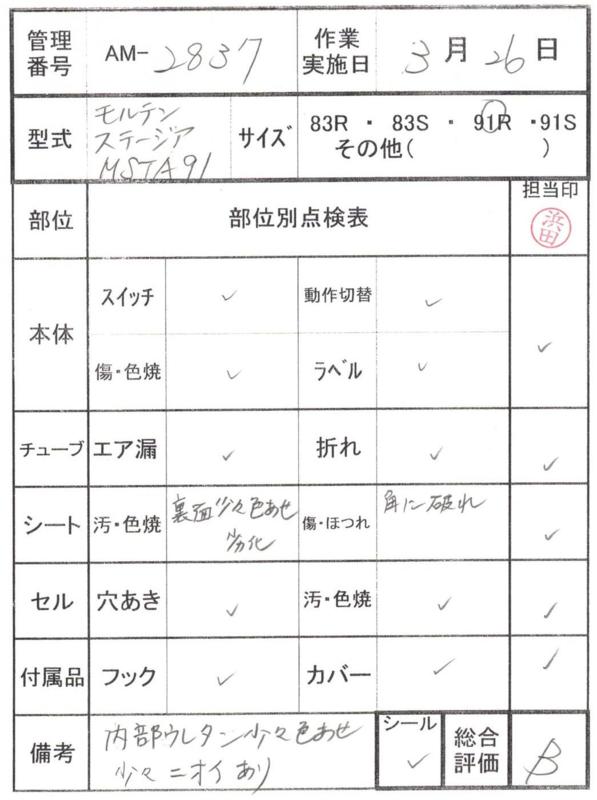 管理番号 AM-2837 作業実施日 3月26日
型式 モルテン ステージア MSTA91 サイズ 83R・83S・91R・91S
その他( )
部位 部位別点検表 担当印 浜田
本体 スイッチ ✓ 動作切替 ✓ ✓
傷・色焼 ✓ ラベル ✓
チューブ エア漏 ✓ 折れ ✓ ✓
シート 汚・色焼 裏面少々色あせ 劣化 傷・ほつれ 角に破れ ✓
セル 穴あき ✓ 汚・色焼 ✓ ✓
付属品 フック ✓ カバー ✓ ✓
備考 内部ウレタン少々色あせ
少々ニオイあり
シール ✓ 総合評価 B